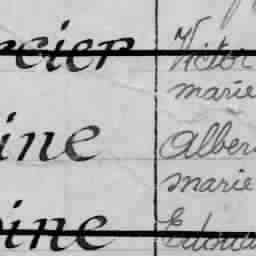 rcier Victor
marie
ine Alber
marie
ine Edoua